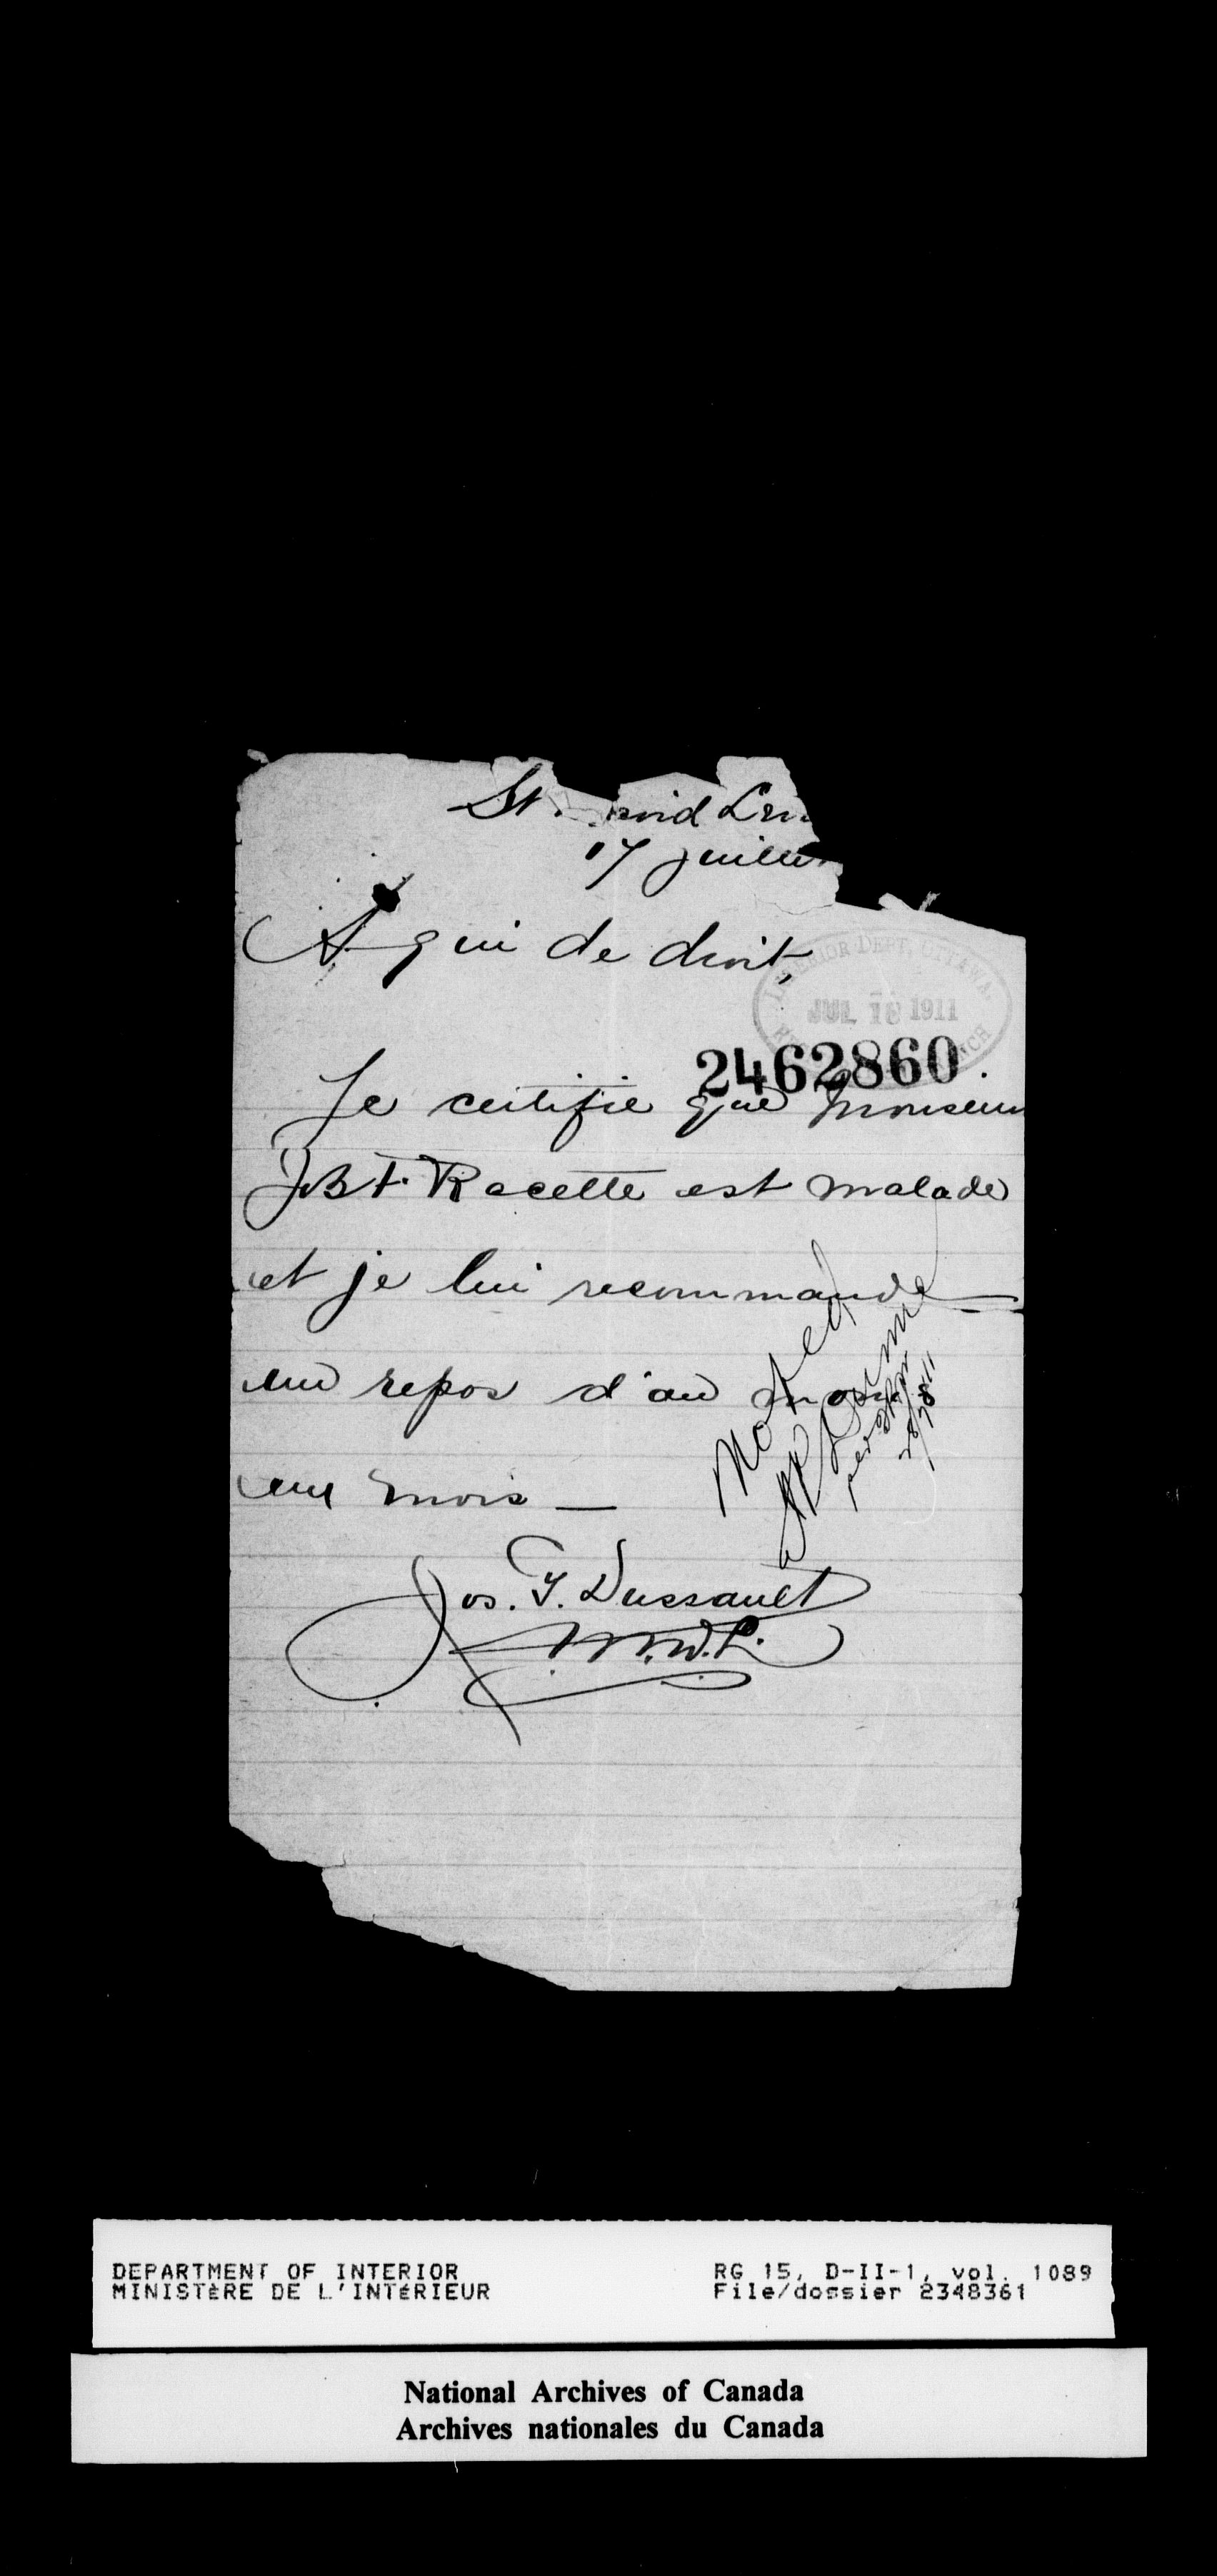 St. David
17 juillet
A qui de droit,
INTERIOR DEPT. OTTAWA.
JUL 18 1911
2462860
Je certifie que Monsieur
J.Bt. Racette est malade
et je lui recommande
un repos d'au moins
un mois —
Noted
per
28/7/11
Jos. G. Dussault
M.D.L.
DEPARTMENT OF INTERIOR
MINISTÈRE DE L'INTÉRIEUR
RG 15, D-II-1, vol. 1089
File/dossier 2348361
National Archives of Canada
Archives nationales du Canada